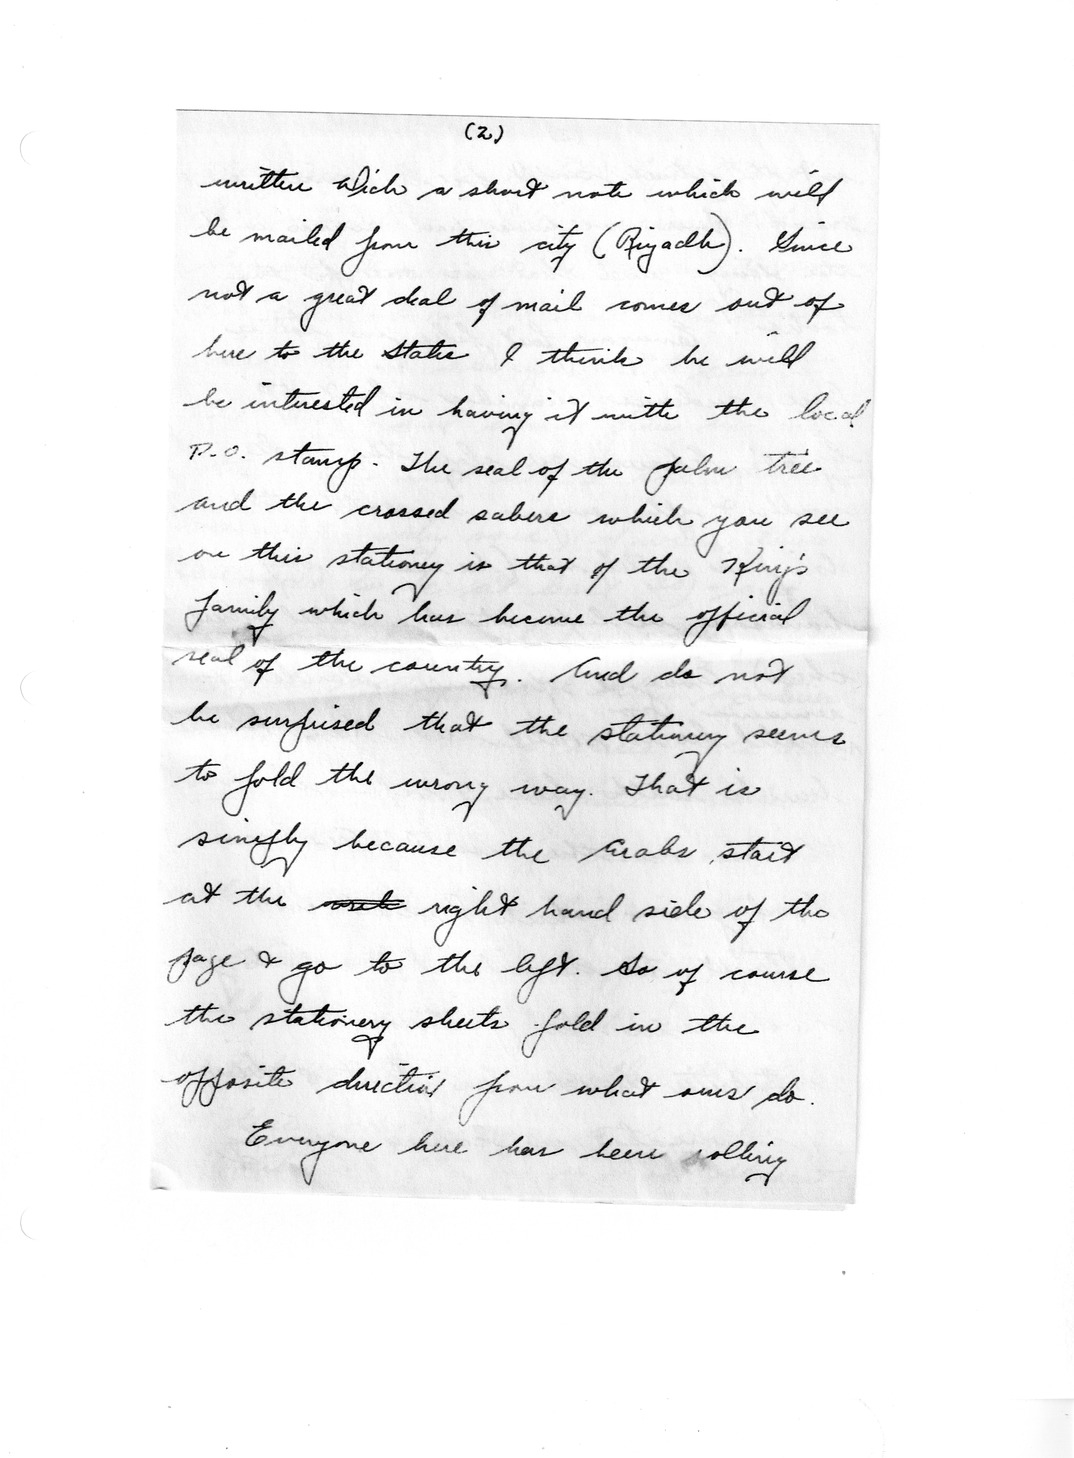 (2)
written Dick a short note which will
be mailed from this city (Riyadh). Since
not a great deal of mail comes out of
here to the States I think he will
be interested in having it with the local
P.O. stamp. The seal of the palm tree
and the crossed sabers which you see
on this stationey is that of the King's
family which has become the official
seal of the country. And do not
be surprised that the stationery seems
to fold the wrong way. That is
simply because the Arabs start
at the right hand side of the
page & go to the left. So of course
the stationery sheets fold in the
opposite direction from what ours do.
Everyone here has been rolling